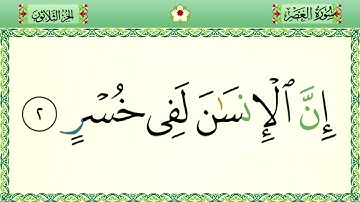 سُورَةُ العَصْرِ
الجُزْءُ الثَّلَاثُونَ
إِنَّ ٱلْإِنسَـٰنَ لَفِى خُسْرٍ ٢